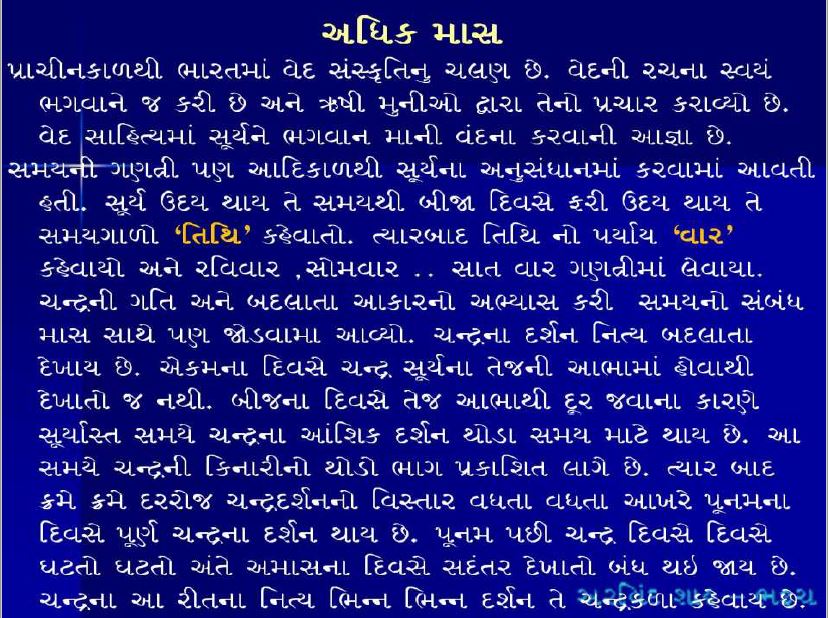 અધિક માસ
પ્રાચીનકાળથી ભારતમાં વેદ સંસ્કૃતિનુ ચલણ છે. વેદની રચના સ્વયં
ભગવાને જ કરી છે અને ઋષી મુનીઓ દ્વારા તેનો પ્રચાર કરાવ્યો છે.
વેદ સાહિત્યમાં સૂર્યને ભગવાન માની વંદના કરવાની આજ્ઞા છે.
સમયની ગણત્રી પણ આદિકાળથી સૂર્યના અનુસંધાનમાં કરવામાં આવતી
હતી. સૂર્ય ઉદય થાય તે સમયથી બીજા દિવસે ફરી ઉદય થાય તે
સમયગાળો ‘તિથિ’ કહેવાતો. ત્યારબાદ તિથિ નો પર્યાય ‘વાર’
કહેવાયો અને રવિવાર ,સોમવાર .. સાત વાર ગણત્રીમાં લેવાયા.
ચન્દ્રની ગતિ અને બદલાતા આકારનો અભ્યાસ કરી સમયનો સંબંધ
માસ સાથે પણ જોડવામા આવ્યો. ચન્દ્રના દર્શન નિત્ય બદલાતા
દેખાય છે. એકમના દિવસે ચન્દ્ર સૂર્યના તેજની આભામાં હોવાથી
દેખાતો જ નથી. બીજના દિવસે તેજ આભાથી દૂર જવાના કારણે
સૂર્યાસ્ત સમયે ચન્દ્રના આંશિક દર્શન થોડા સમય માટે થાય છે. આ
સમયે ચન્દ્રની કિનારીનો થોડો ભાગ પ્રકાશિત લાગે છે. ત્યાર બાદ
ક્રમે ક્રમે દરરોજ ચન્દ્રદર્શનનો વિસ્તાર વધતા વધતા આખરે પૂનમના
દિવસે પૂર્ણ ચન્દ્રના દર્શન થાય છે. પૂનમ પછી ચન્દ્ર દિવસે દિવસે
ઘટતો ઘટતો અંતે અમાસના દિવસે સદંતર દેખાતો બંધ થઇ જાય છે.
ચન્દ્રના આ રીતના નિત્ય ભિન્ન ભિન્ન દર્શન તે ચન્દ્રકળા કહેવાય છે.